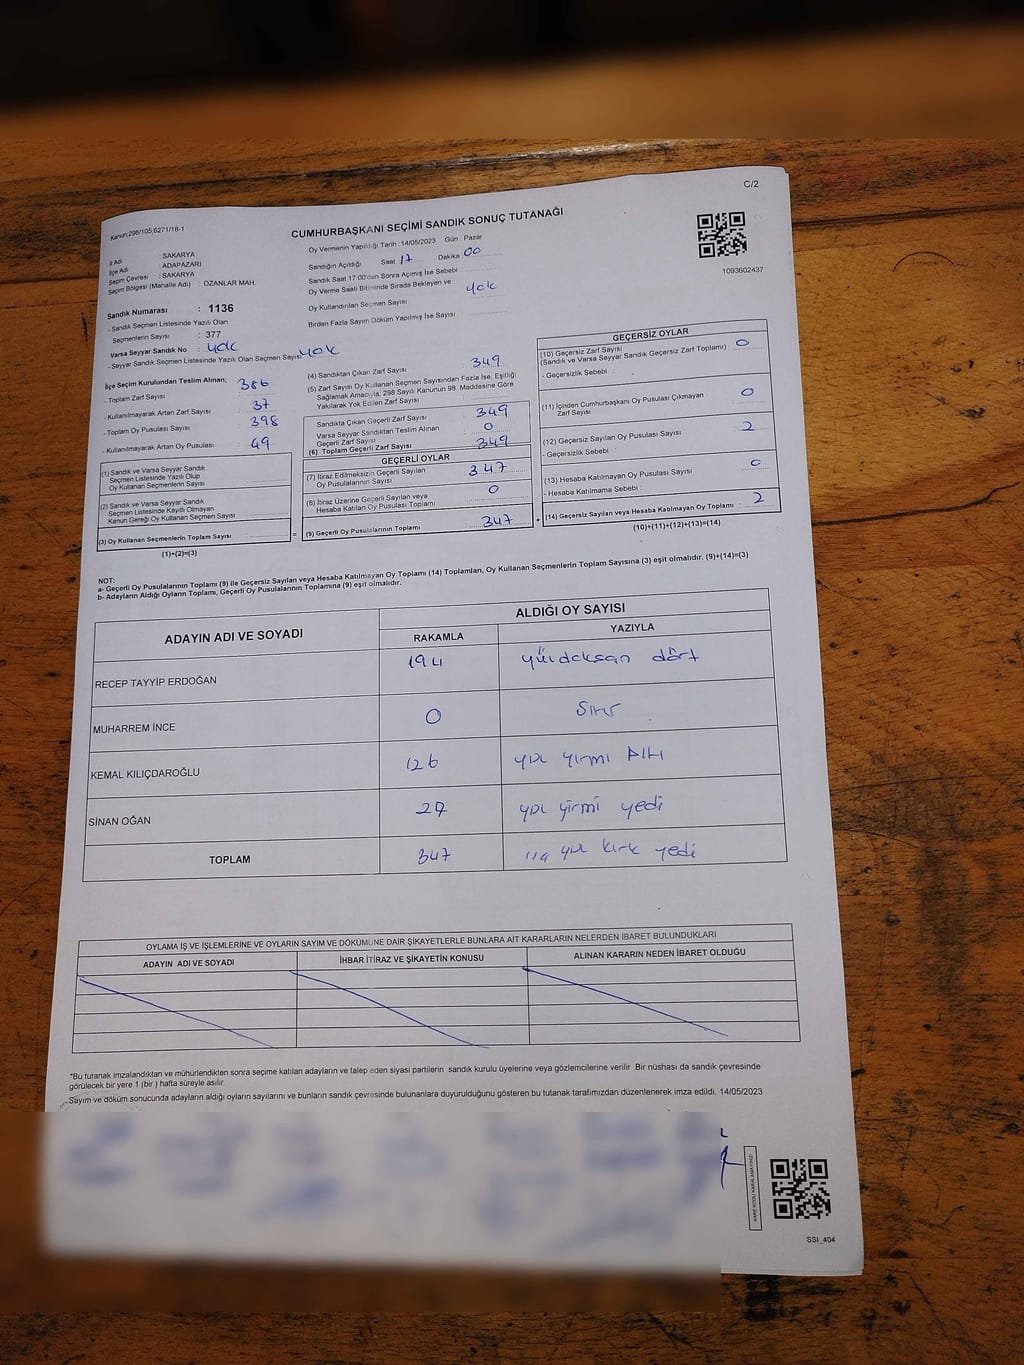 C/2
Kanun:298/105;6271/18-1
CUMHURBAŞKANI SEÇİMİ SANDIK SONUÇ TUTANAĞI
1093602437
İl Adı : SAKARYA
İlçe Adı : ADAPAZARI
Seçim Çevresi : SAKARYA
Seçim Bölgesi (Mahalle Adı) : OZANLAR MAH.
Oy Vermenin Yapıldığı Tarih :14/05/2023 Gün : Pazar
Sandığın Açıldığı Saat 17 Dakika 00
Sandık Saat 17:00'den Sonra Açılmış İse Sebebi
Oy Verme Saati Bitiminde Sırada Bekleyen ve yok
Oy Kullandırılan Seçmen Sayısı
Birden Fazla Sayım Döküm Yapılmış İse Sayısı
Sandık Numarası : 1136
- Sandık Seçmen Listesinde Yazılı Olan
Seçmenlerin Sayısı : 377
Varsa Seyyar Sandık No : yok
- Seyyar Sandık Seçmen Listesinde Yazılı Olan Seçmen Sayısı: yok
İlçe Seçim Kurulundan Teslim Alınan;
- Toplam Zarf Sayısı : 386
- Kullanılmayarak Artan Zarf Sayısı : 37
- Toplam Oy Pusulası Sayısı : 398
- Kullanılmayarak Artan Oy Pusulası : 49
(1) Sandık ve Varsa Seyyar Sandık
Seçmen Listesinde Yazılı Olup
Oy Kullanan Seçmenlerin Sayısı
(2) Sandık ve Varsa Seyyar Sandık
Seçmen Listesinde Kayıtlı Olmayan
Kanun Gereği Oy Kullanan Seçmen Sayısı
(3) Oy Kullanan Seçmenlerin Toplam Sayısı :
(1)+(2)=(3)
(4) Sandıktan Çıkan Zarf Sayısı 349
(5) Zarf Sayısı Oy Kullanan Seçmen Sayısından Fazla İse, Eşitliği
Sağlamak Amacıyla, 298 Sayılı Kanunun 98. Maddesine Göre
Yakılarak Yok Edilen Zarf Sayısı
Sandıkta Çıkan Geçerli Zarf Sayısı 349
Varsa Seyyar Sandıktan Teslim Alınan
Geçerli Zarf Sayısı 0
(6) Toplam Geçerli Zarf Sayısı 349
GEÇERLİ OYLAR
(7) İtiraz Edilmeksizin Geçerli Sayılan
Oy Pusulalarının Sayısı 347
(8) İtiraz Üzerine Geçerli Sayılan veya
Hesaba Katılan Oy Pusulası Toplamı 0
= (9) Geçerli Oy Pusulalarının Toplamı 347 +
GEÇERSİZ OYLAR
(10) Geçersiz Zarf Sayısı 0
(Sandık ve Varsa Seyyar Sandık Geçersiz Zarf Toplamı)
- Geçersizlik Sebebi :
(11) İçinden Cumhurbaşkanı Oy Pusulası Çıkmayan
Zarf Sayısı 0
(12) Geçersiz Sayılan Oy Pusulası Sayısı 2
- Geçersizlik Sebebi :
(13) Hesaba Katılmayan Oy Pusulası Sayısı 0
- Hesaba Katılmama Sebebi :
(14) Geçersiz Sayılan veya Hesaba Katılmayan Oy Toplamı : 2
(10)+(11)+(12)+(13)=(14)
NOT:
a- Geçerli Oy Pusulalarının Toplamı (9) ile Geçersiz Sayılan veya Hesaba Katılmayan Oy Toplamı (14) Toplamları, Oy Kullanan Seçmenlerin Toplam Sayısına (3) eşit olmalıdır. (9)+(14)=(3)
b- Adayların Aldığı Oyların Toplamı, Geçerli Oy Pusulalarının Toplamına (9) eşit olmalıdır.
ADAYIN ADI VE SOYADI
ALDIĞI OY SAYISI
RAKAMLA
YAZIYLA
RECEP TAYYİP ERDOĞAN 194 dört
MUHARREM İNCE 0 Sıfır
KEMAL KILIÇDAROĞLU 126 yüz yirmi Altı
SİNAN OĞAN 27 yüz yirmi yedi
TOPLAM 347 üç yüz kırk yedi
OYLAMA İŞ VE İŞLEMLERİNE VE OYLARIN SAYIM VE DÖKÜMÜNE DAİR ŞİKAYETLERLE BUNLARA AİT KARARLARIN NELERDEN İBARET BULUNDUKLARI
ADAYIN ADI VE SOYADI
İHBAR İTİRAZ VE ŞİKAYETİN KONUSU
ALINAN KARARIN NEDEN İBARET OLDUĞU
*Bu tutanak imzalandıktan ve mühürlendikten sonra seçime katılan adayların ve talep eden siyasi partilerin sandık kurulu üyelerine veya gözlemcilerine verilir .Bir nüshası da sandık çevresinde
görülecek bir yere 1 (bir ) hafta süreyle asılır
Sayım ve döküm sonucunda adayların aldığı oyların sayılarını ve bunların sandık çevresinde bulunanlara duyurulduğunu gösteren bu tutanak tarafımızdan düzenlenerek imza edildi. 14/05/2023
KARE KODU KARALAMAYINIZ!
SSI_404